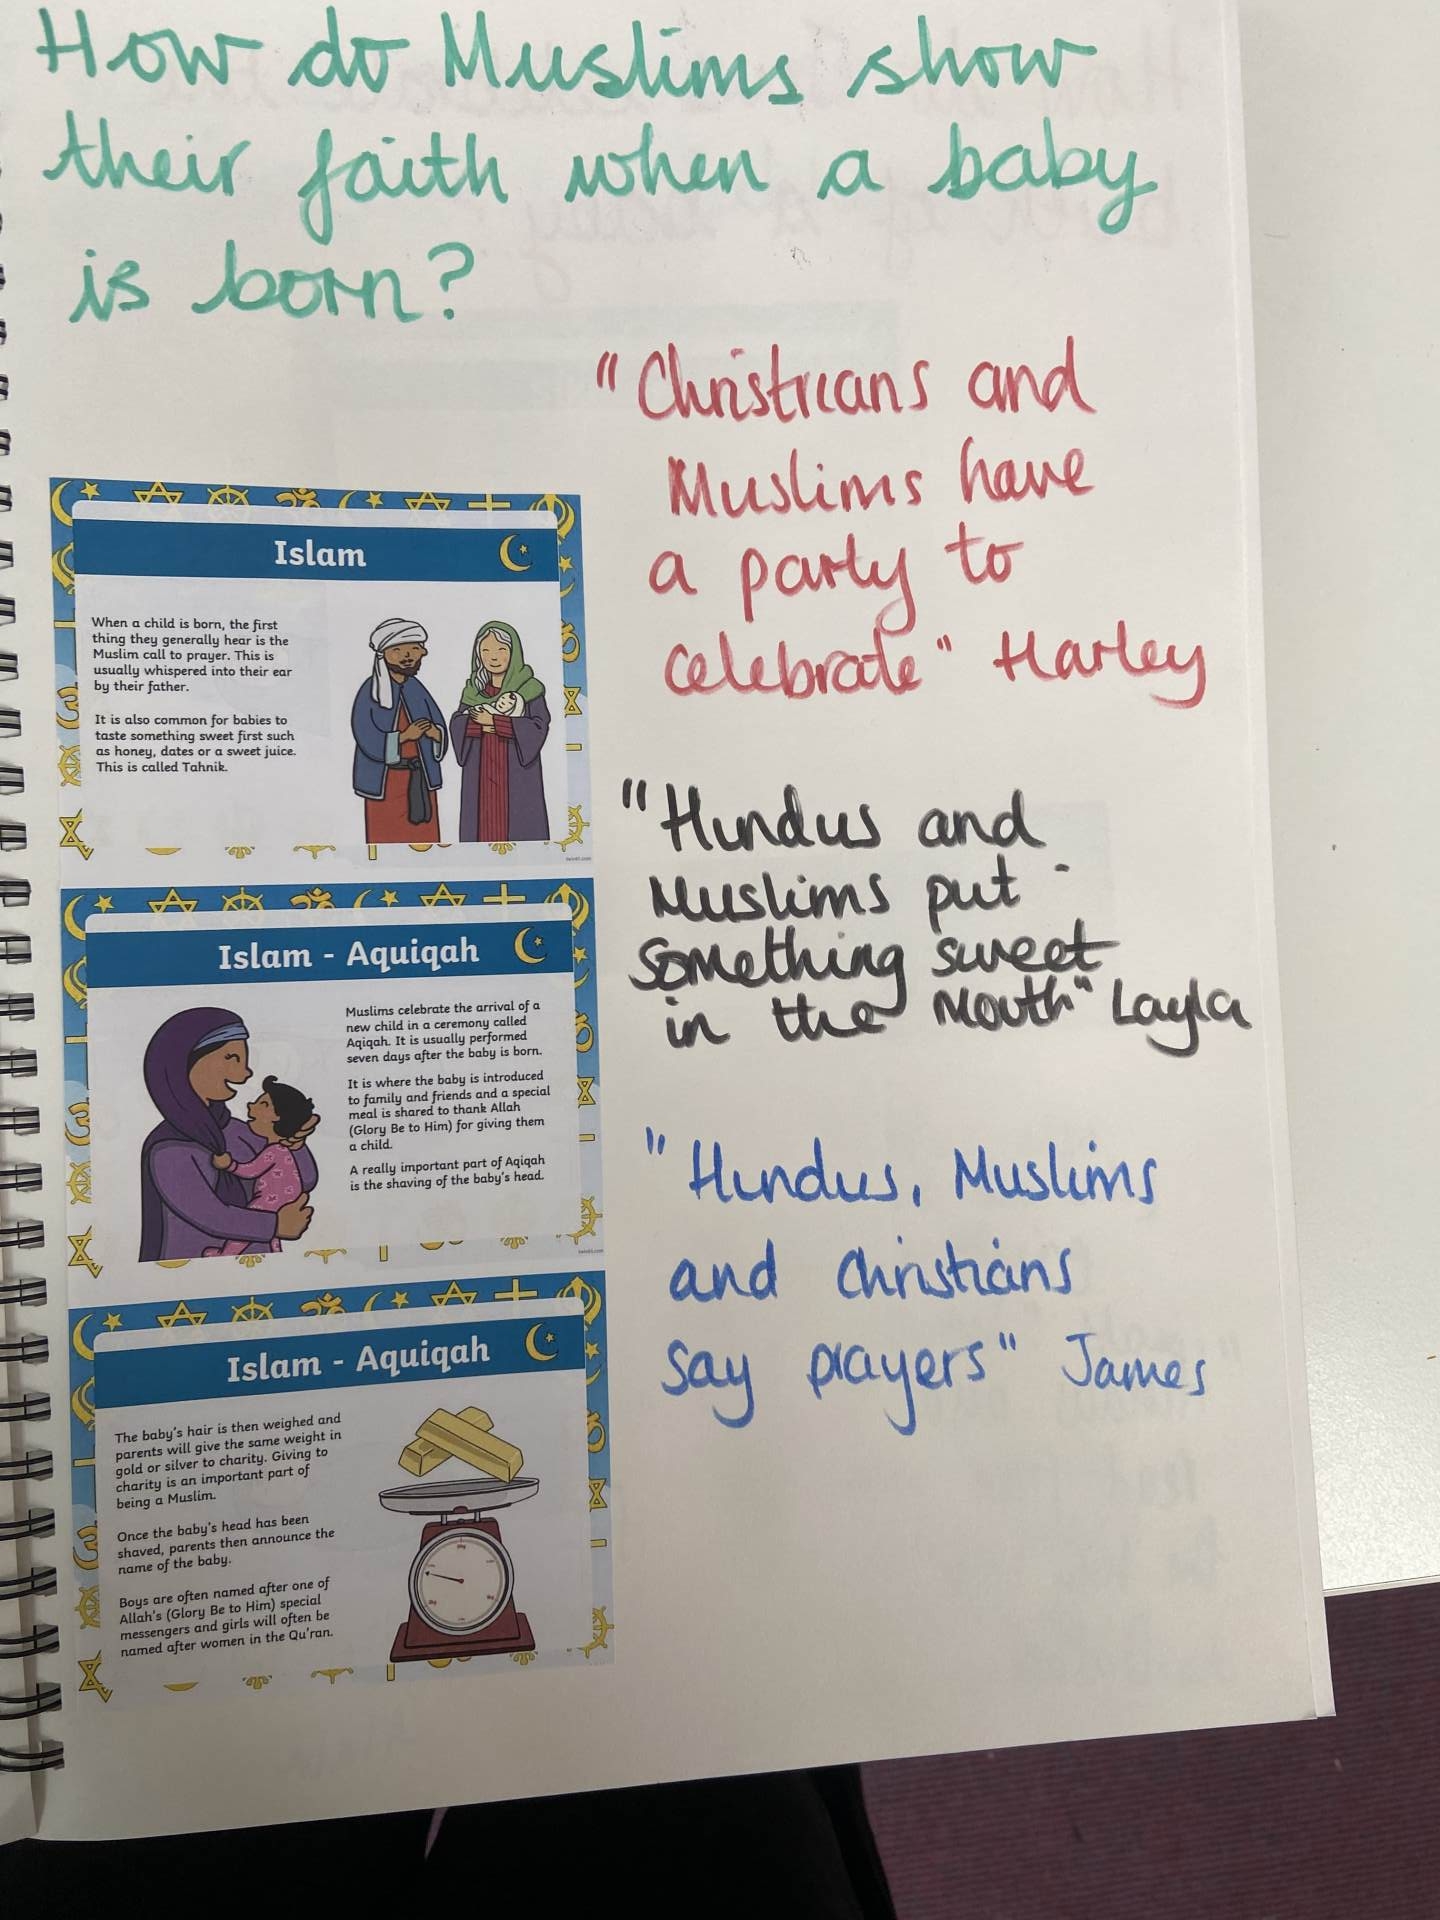 How do Muslims show
their faith when a baby
is born?
"Christians and
Muslims have
a party to
celebrate" Harley
"Hindus and
Muslims put
something sweet
in the mouth" Layla
"Hindus, Muslims
and Christians
say prayers" James
Islam
When a child is born, the first
thing they generally hear is the
Muslim call to prayer. This is
usually whispered into their ear
by their father.
It is also common for babies to
taste something sweet first such
as honey, dates or a sweet juice.
This is called Tahnik.
Islam - Aquiqah
Muslims celebrate the arrival of a
new child in a ceremony called
Aqiqah. It is usually performed
seven days after the baby is born.
It is where the baby is introduced
to family and friends and a special
meal is shared to thank Allah
(Glory Be to Him) for giving them
a child.
A really important part of Aqiqah
is the shaving of the baby's head.
Islam - Aquiqah
The baby's hair is then weighed and
parents will give the same weight in
gold or silver to charity. Giving to
charity is an important part of
being a Muslim.
Once the baby's head has been
shaved, parents then announce the
name of the baby.
Boys are often named after one of
Allah's (Glory Be to Him) special
messengers and girls will often be
named after women in the Qu'ran.